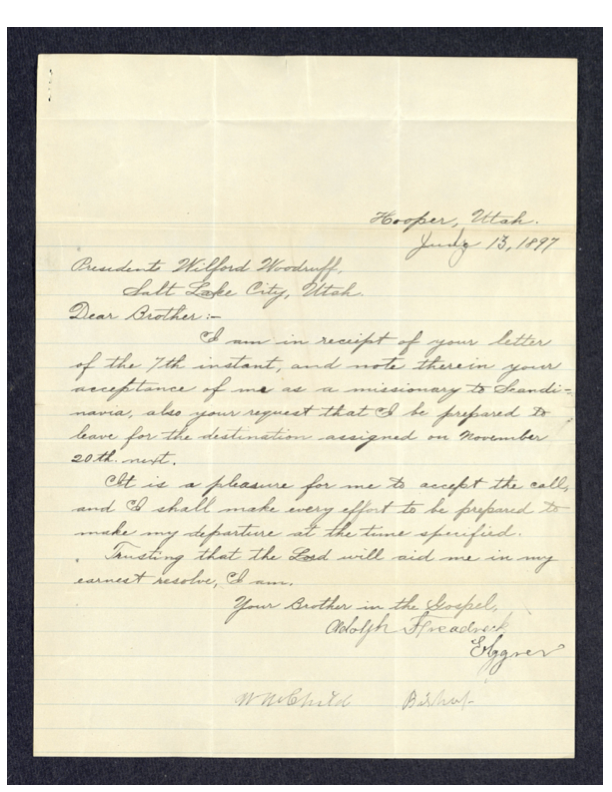 Hooper, Utah.
July 13, 1897
President Wilford Woodruff,
Salt Lake City, Utah.
Dear Brother:-
I am in receipt of your letter
of the 7th instant, and note therein your
acceptance of me as a missionary to Scandi=
navia, also your request that I be prepared to
leave for the destination assigned on November
20th. next.
It is a pleasure for me to accept the call,
and I shall make every effort to be prepared to
make my departure at the time specified.
Trusting that the Lord will aid me in my
earnest resolve, I am.
Your Brother in the Gospel,
Adolph
Bishop